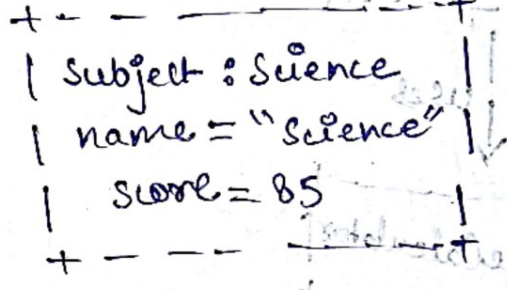 Subject : Science
name = "Science"
score = 85